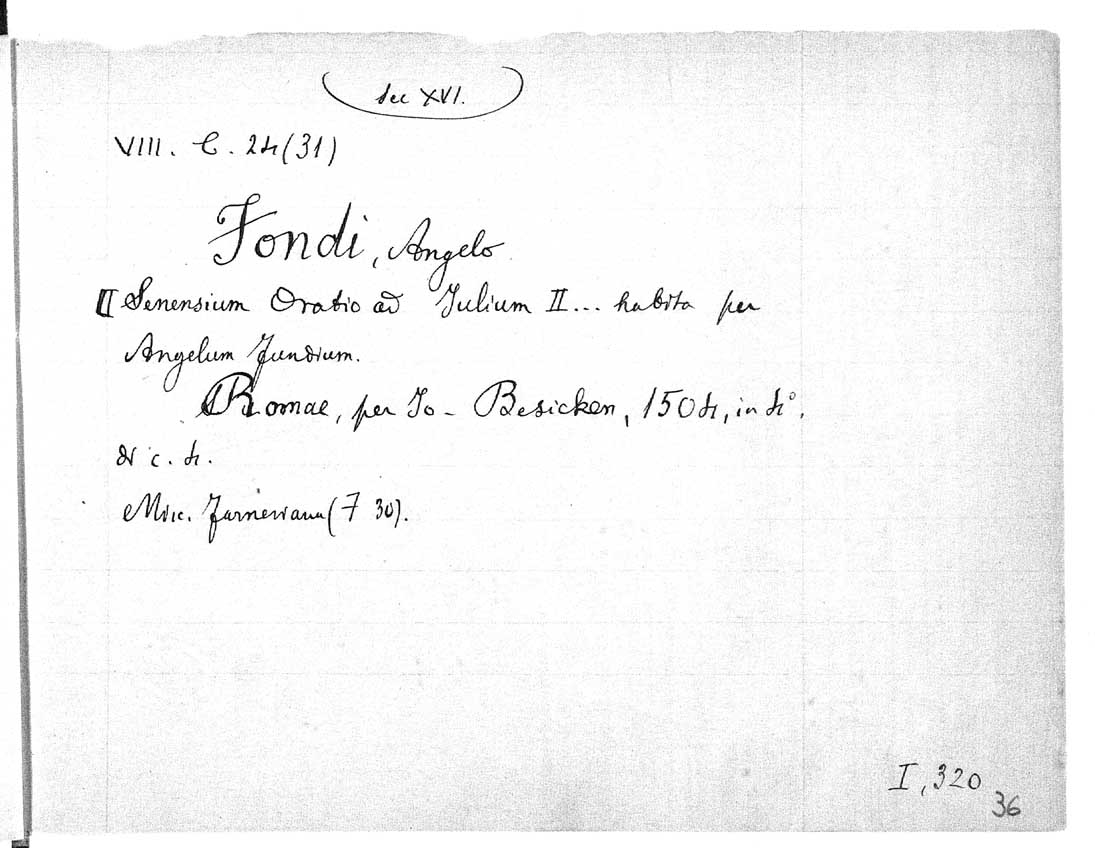 sec XVI.
VIII. C. 24(31)
Fondi, Angelo
[ Senensium Oratio ad Julium II... habita per
Angelum Fundium.
Romae, per Jo- Besicken, 1504, in 4°.
di c. 4.
Misc. Farnesiana (7 30).
I, 320
36